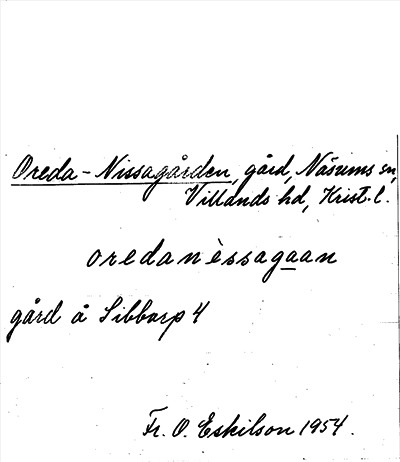 Oreda-Nissagården, gård, Näsums sn,
Villands hd, Krist. l.
oredanèssagaan
gård å Sibbarp 4
Fr. O. Eskilson 1954.